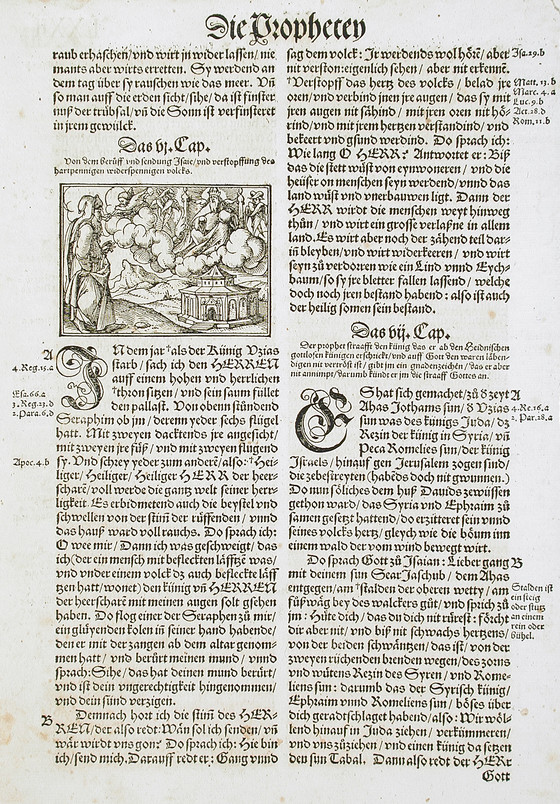 Die Propheten
raub erhaschen/vnd wirt jn wider lassen/ nie
mants aber wirts erretten. Sy werdend an
dem tag über sy rauschen wie das meer. Vñ
so man auff die erden sicht/sihe/ da ist finster
nuß der trübsal/vñ die Sonn ist verfinsteret
in jrem gewülck.
Das vj. Cap.
Von dem Berüff vnd sendung Isaie/vnd verstopffung des
hartpennigen widerspennigen volcks.
A
4. Reg.15.a
Esa.66.a
Apoc.4.b
IN dem jar †als der Künig Vzias
starb/ sach ich den HERREN
auff einem hohen vnd herrlichen
†thron sitzen/ vnd sein saum füllet
den pallast. Von obenn stündend
Seraphim ob jm/ derenn yeder sechs flügel
hatt. Mit zweyen dacktends jre angesicht/
mit zweyen jre füß/ vnd mit zweyen flügend
sy. Vnd schrey yeder zum andere/also: †Hei-
liger/ Heiliger/ Heiliger HERR der heer-
scharē/ voll werde die gantz welt seiner herr-
ligkeit. Es erbidmetend auch die beystel vnd
schwellen von der stiñ der rüffenden/ vnnd
das hauß ward voll rauchs. Do sprach ich:
O wee mir/ Dann ich was geschweigt/ das
ich (der ein mensch mit befleckten läfftzē was/
vnd vnder einem volck dz auch befleckte läff
tzen hatt/wonet) den künig vñ HERREN
der heerscharē mit meinen augen solt gsehen
haben. Do flog einer der Seraphen zů mir/
ein glüyenden kolen iñ seiner hand habende/
den er mit der zangen ab dem altar genom-
men hatt/ vnd berürt meinen mund/ vnnd
sprach: Sihe/ das hat deinen mund berürt/
vnd ist dein vngerechtigkeit hingenommen/
vnd dein sünd verzigen.
B
Demnach hort ich die stiñ des HER-
REN/ der also redt: Wän sol ich senden/ vñ
wär wirdt vns gon? Do sprach ich: Hie bin
ich/send mich. Darauff redt er: Gang vnnd
sag dem volck: Jr werdends wol hörē/ aber
nit verston: eigenlich sehen/ aber nit erkennē.
†Verstopff das hertz des volcks/ belad jre
oren/ vnd verbind jnen jre augen/ das sy mit
jren augen nit sähind/ mit jren oren nit hö-
rind/vnd mit jrem hertzen verstandind/ vnd
bekeert vnd gsund werdind. Do sprach ich:
Wie lang O HERR? Antwortet er: Biß
das die stett wüst von eynwoneren/ vnd die
heüser on menschen seyn werdend/vnnd das
land wüst vnd vnerbauwen ligt. Dann der
HERR wirdt die menschen weyt hinweg
thůn/ vnd wirt ein grosse verlaßne in allem
land. Es wirt aber noch der zähend teil dar-
iñ bleyben/vnd wirt widerkeeren/ vnd wirt
seyn zů verdorren wie ein Lind vnnd Eych-
baum/so sy jre bletter fallen lassend/ welche
doch noch jren bestand habend: also ist auch
der heilig somen sein bestand.
Isa.29.b
Matt.13.b
Marc.4.a
Luc.9.b
Act.28.d
Rom.11.b
Das vij. Cap.
Der prophet straafft den künig das er ab den Heidnischen
gottlosen künigen erschrickt/vnd auff Gott den waren läben-
digen nit vertröst ist/ gibt jm ein gnadenzeichen/ das er aber
nit annimpt/darumb kündt er jm die straaff Gottes an.
A
4 Re.16.a
2. Par.28.a
ES hat sich gemachet/zů ð zeyt
Ahas Jothams sun/ ð Vzias
sun was des künigs Juda/ dz
Rezin der künig in Syria/ vñ
Peca Romelies sun/der künig
Israels/ hinauf gen Jerusalem zogen sind/
die zebestreyten (habēds doch nit gwunnen.)
Do nun söliches dem huß Dauids zewüssen
gethon ward/das Syria vnd Ephraim zů
samen gesetzt hattend/do erzitteret sein vnnd
seines volcks hertz/ gleych wie die böum inn
einem wald der vom wind bewegt wirt.
Do sprach Gott zů Isaian: Lieber gang
B
mit deinem sun Sear Jaschub/ dem Ahas
entgegen/am †stalden der oberen wetty/ am
fůßwäg bey des walckers gůt/ vnd sprich zů
jm: Hüte dich/ das du dich nit rürest: förcht
dir aber nit/ vnd biß nit schwachs hertzens/
von der beiden schwäntzen/das ist/ von der
zweyen rüchenden bienden wegen/des zorns
vnd wütens Rezin des Syren/ vnd Rome-
lies sun: darumb das der Syrisch künig/
Ephraim vnnd Romelies sun/ böses über
dich geradtschlaget habend/also: Wir wöl-
lend hinauf in Juda ziehen/ verkümmeren/
vnd vns zůziehen/ vnd einen künig da setzen
den sun Tabal. Dann also redt der HERr
Stalden ist
ein steig
oder stutz
an einem
rein oder
bühel.
Gott